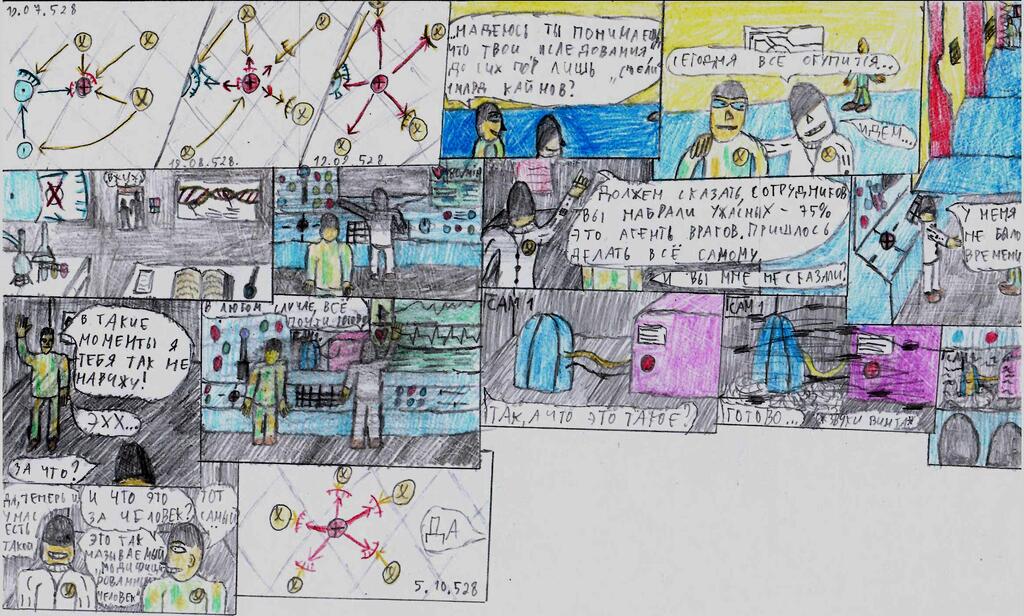 19.07.528
19.08.528.
19.09.528
...НАДЕЮСЬ ТЫ ПОНИМАЕШ,
ЧТО ТВОИ ИСЛЕДОВАНИЯ
ДО СИХ ПОР ЛИШЬ
КАЙНОВ?
СЕГОДНЯ ВСЁ ОКУПИТСЯ...
ИДЕМ...
ВЖУХ
ДОЛЖЕН СКАЗАТЬ, СОТРУДНИКОВ
ВЫ НАБРАЛИ УЖАСНЫХ - 75%
ЭТО АГЕНТЫ ВРАГОВ. ПРИШЛОСЬ
ДЕЛАТЬ ВСЁ САМОМУ.
И ВЫ МНЕ НЕ СКАЗАЛИ!
У МЕНЯ
НЕ БЫЛО
ВРЕМЕНИ
В ТАКИЕ
МОМЕНТЫ Я
ТЕБЯ ТАК НЕ
НАВИЖУ!
ЭХХ...
ЗА ЧТО?
В ЛЮБОМ СЛУЧАЕ, ВСЁ
ПОЧТИ ГОТОВО
CAM 1
ТАК, А ЧТО ЭТО ТАКОЕ?
CAM 1
ГОТОВО...
*ЗВУКИ ВИНТА*
CAM 1
ДА, ТЕПЕРЬ И
У НАС
ЕСТЬ
ТАКОЙ
И ЧТО ЭТО
ЗА ЧЕЛОВЕК?
ЭТО ТАК
НАЗИВАЕМЫЙ
"МОДИФИЦИ
РОВАННЫЙ
ЧЕЛОВЕК"
ТОТ
САМЫЙ
ДА
5.10.528